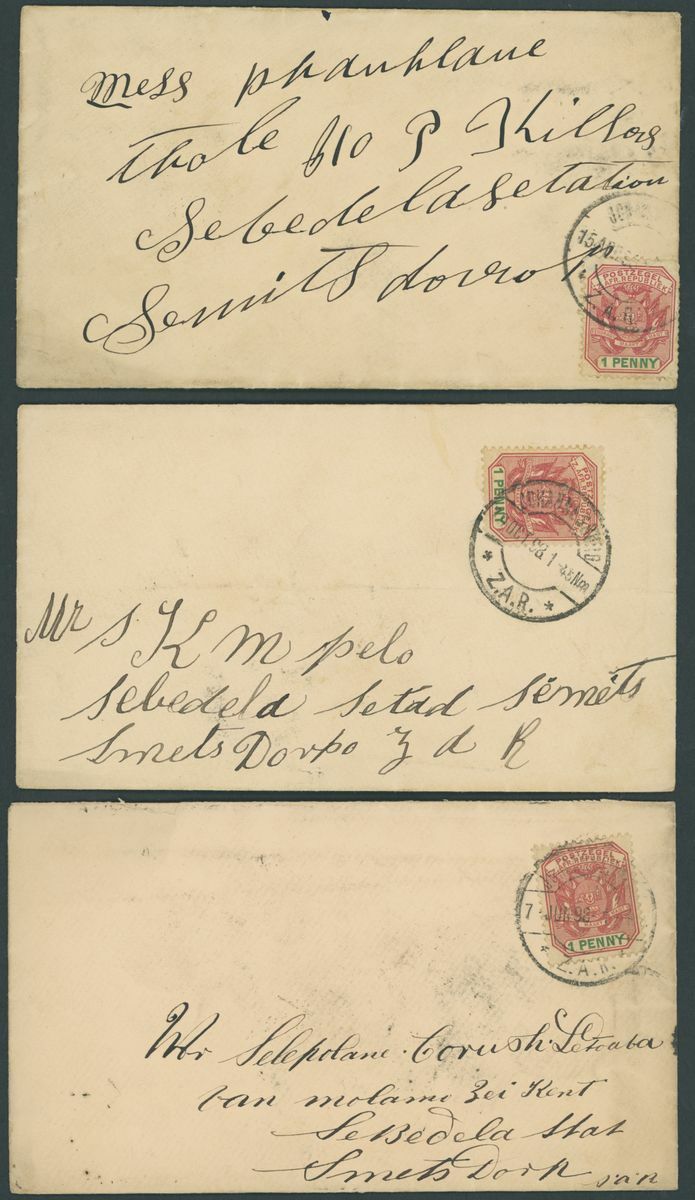 Mess phanhlane
thole % P Killsog
Sebedelasetation
Semits dorrop
15
Z.A.R.
POSTZEGEL
Z. AFR. REPUBLIEK
1 PENNY
POSTZEGEL
Z. AFR. REPUBLIEK
1 PENNY
OCT.98 1
Z.A.R.
Mr S K M pelo
Sebedela Setad Sémets
Smets Dorpo Z A R
POSTZEGEL
Z. AFR. REPUBLIEK
1 PENNY
7 JUN 98
Z.A.R.
Selepolane Corush Letoaba
van molamo Zei Kent
SeBedela Stat
Smets Dorp